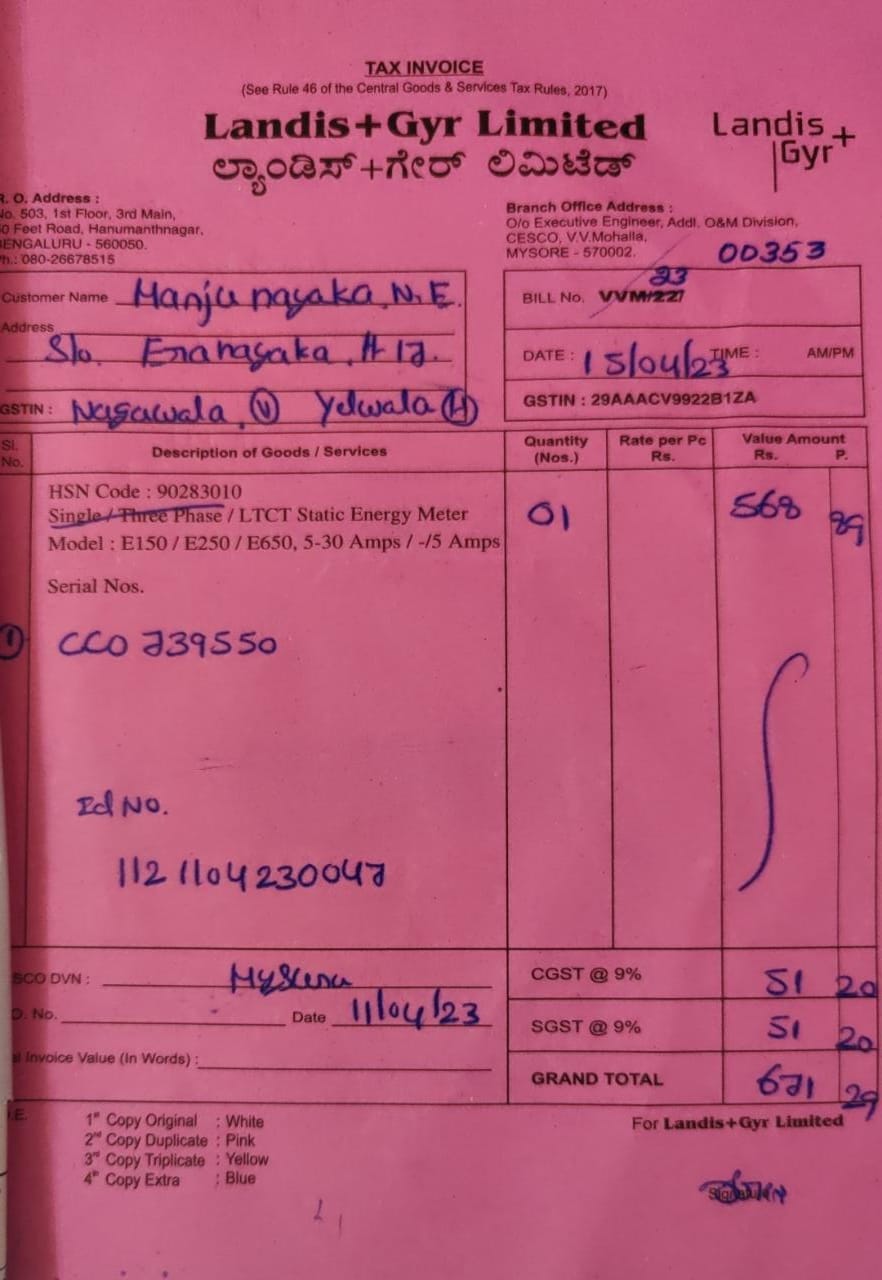 TAX INVOICE
(See Rule 46 of the Central Goods & Services Tax Rules, 2017)
Landis+Gyr Limited
ಲ್ಯಾಂಡಿಸ್+ಗೇರ್ ಲಿಮಿಟೆಡ್
Landis+
Gyr+
R. O. Address :
No. 503, 1st Floor, 3rd Main,
0 Feet Road, Hanumanthnagar,
BENGALURU - 560050.
Ph.: 080-26678515
Branch Office Address :
O/o Executive Engineer, Addl. O&M Division,
CESCO, V.V.Mohalla,
MYSORE - 570002.
00353
Customer Name Manju nayaka N.E.
Address
S/o.
GSTIN : Nagawala (V) Yelwala (H)
23
BILL No. VVM/227
DATE : 15/04/23 TIME : AM/PM
GSTIN : 29AAACV9922B1ZA
Sl. No. Description of Goods / Services Quantity (Nos.) Rate per Pc Rs. Value Amount Rs. P.
HSN Code : 90283010
Single / Three Phase / LTCT Static Energy Meter 01 568 89
Model : E150 / E250 / E650, 5-30 Amps / -/5 Amps
Serial Nos.
1 CCO 739550
Id No.
1121104230047
SCO DVN : Mysuru
D. No. Date 11/04/23
l Invoice Value (In Words) :
CGST @ 9% 51 20
SGST @ 9% 51 20
GRAND TOTAL 671 29
.E.
1st Copy Original : White
2nd Copy Duplicate : Pink
3rd Copy Triplicate : Yellow
4th Copy Extra : Blue
For Landis+Gyr Limited